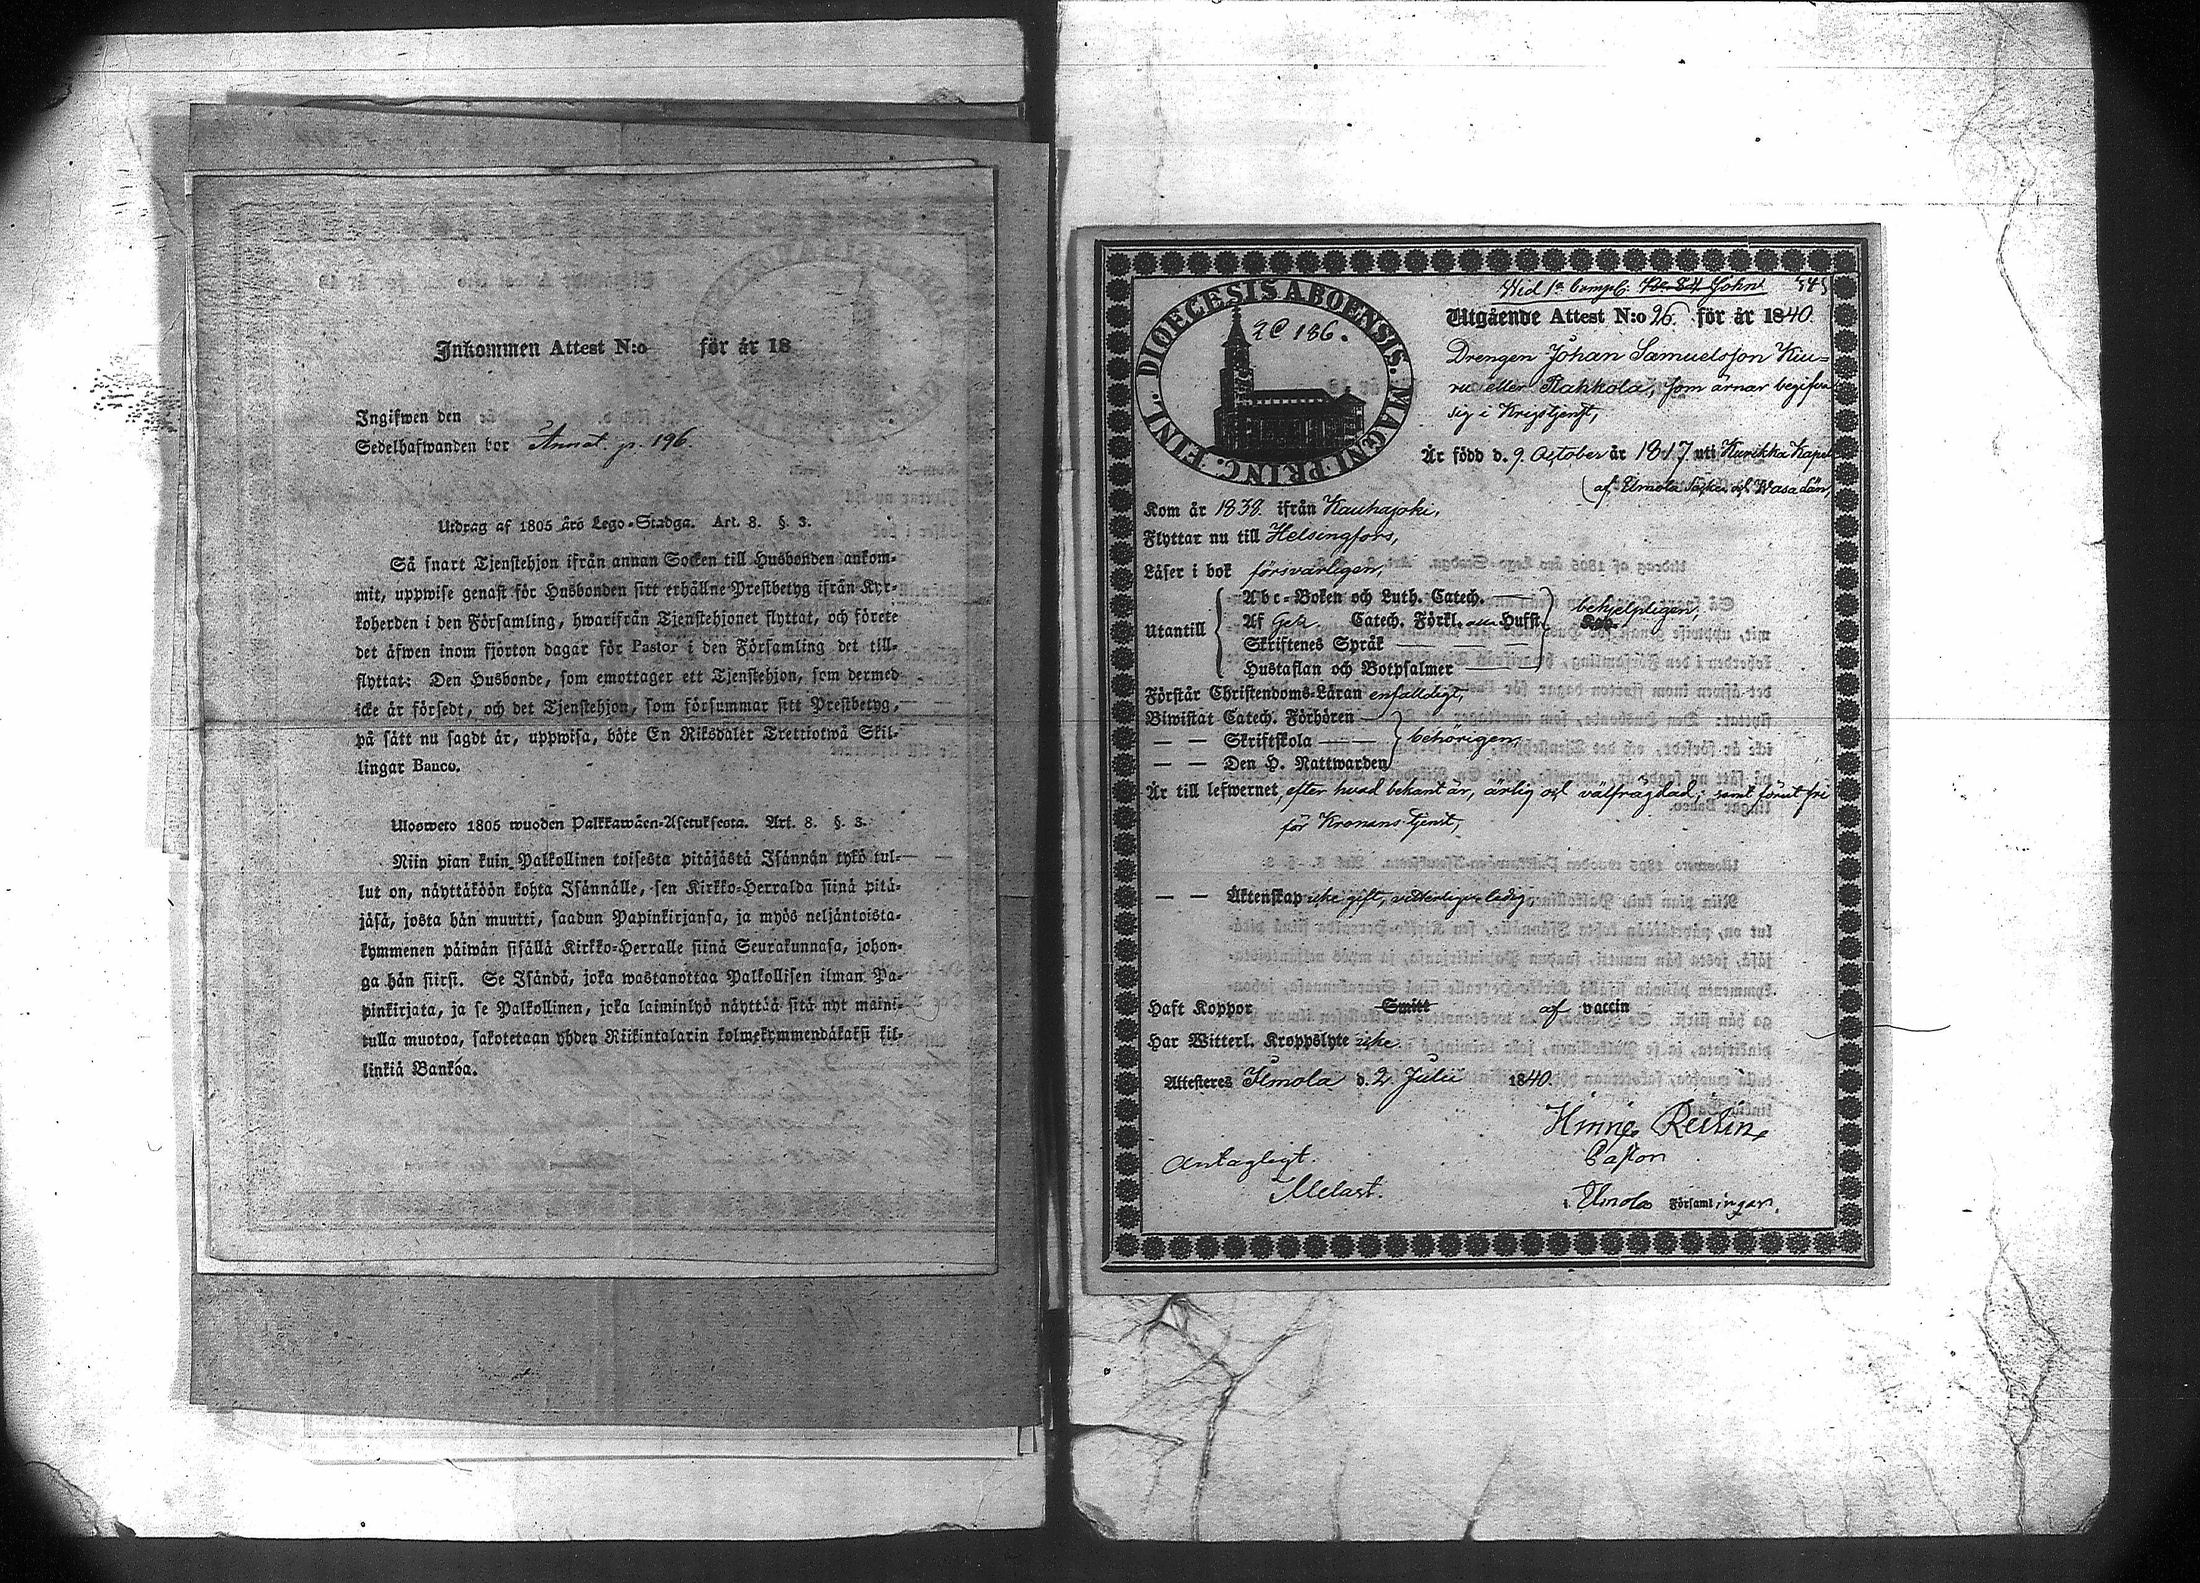 Inkommen Attest N:o för år 18
Ingifwen den
Sedelhafwanden bor Annot. p. 196.
Utdrag af 1805 års Lego-Stadga. Art. 8. §. 3.
Så snart Tjenstehjon ifrån annan Socken till Husbonden ankom-
mit, uppwise genast för Husbonden sitt erhållne Prestbetyg ifrån Kyr-
koherden i den Församling, hwarifrån Tjenstehjonet flyttat, och förete
det äfwen inom fjorton dagar för Pastor i den Församling det till-
flyttat: Den Husbonde, som emottager ett Tjenstehjon, som dermed
icke är försedt, och det Tjenstehjon, som försummar sitt Prestbetyg,
på sätt nu sagdt är, uppwisa, böte En Riksdaler Trettiotwå Skil-
lingar Banco.
Ulosweto 1805 wuoden Palkkawäen-Asetuksesta. Art. 8. §. 3.
Niin pian kuin Palkollinen toisesta pitäjästä Isännän tykö tul-
lut on, näyttäköön kohta Isännälle, sen Kirkko-Herralda siinä pitä-
jäsä, josta hän muutti, saadun Papinkirjansa, ja myös neljäntoista-
kymmenen päiwän sisällä Kirkko-Herralle siinä Seurakunnasa, johon-
ga hän siirsi. Se Isändä, joka wastanottaa Palkollisen ilman Pa-
pinkirjata, ja se Palkollinen, joka laiminlyö näyttää sitä nyt maini-
tulla muotoa, sakotetaan yhden Riikintalarin kolmekymmendäkaksi kil-
linkiä Bankóa.
DIOECESIS ABOENSIS. MAGNI PRINC. FINL.
2C 186.
Wid 1a comp. Johns
Utgående Attest N:o 26. för år 1840.
Drengen Johan Samuelsson Kiu-
ru eller Rahkola, som ärnar begifva
sig i Krigstjenst,
Är född d. 9 October år 1817 uti Kurikka Kapel
af Ilmola Socken och Wasa län,
Kom år 1838 ifrån Kauhajoki,
Flyttar nu till Helsingfors,
Läser i bok försvarligen,
Utantill
Abc-Boken och Luth. Catech.
Af Gez. Catech. Förkl. Husst. behjelpligen,
Skriftenes Språk
Hustaflan och Botpsalmer
Förstår Christendoms-Läran enfaldigt,
Biwistat Catech. Förhören
— — Skriftskola behörigen,
— — Den H. Nattwarden
Är till lefwernet, efter hvad bekant är, ärlig och välfrägdad; samt förut fri
för Kronans tjenst,
— — Äktenskap icke gift, vitterligen ledig
Haft Koppor Smitt af vaccin
Har Witterl. Kroppslyte icke
Attesteras Ilmola d. 2 Julii 1840.
Pastor
Antagligt.
Melart.
i Ilmola Församlingar.